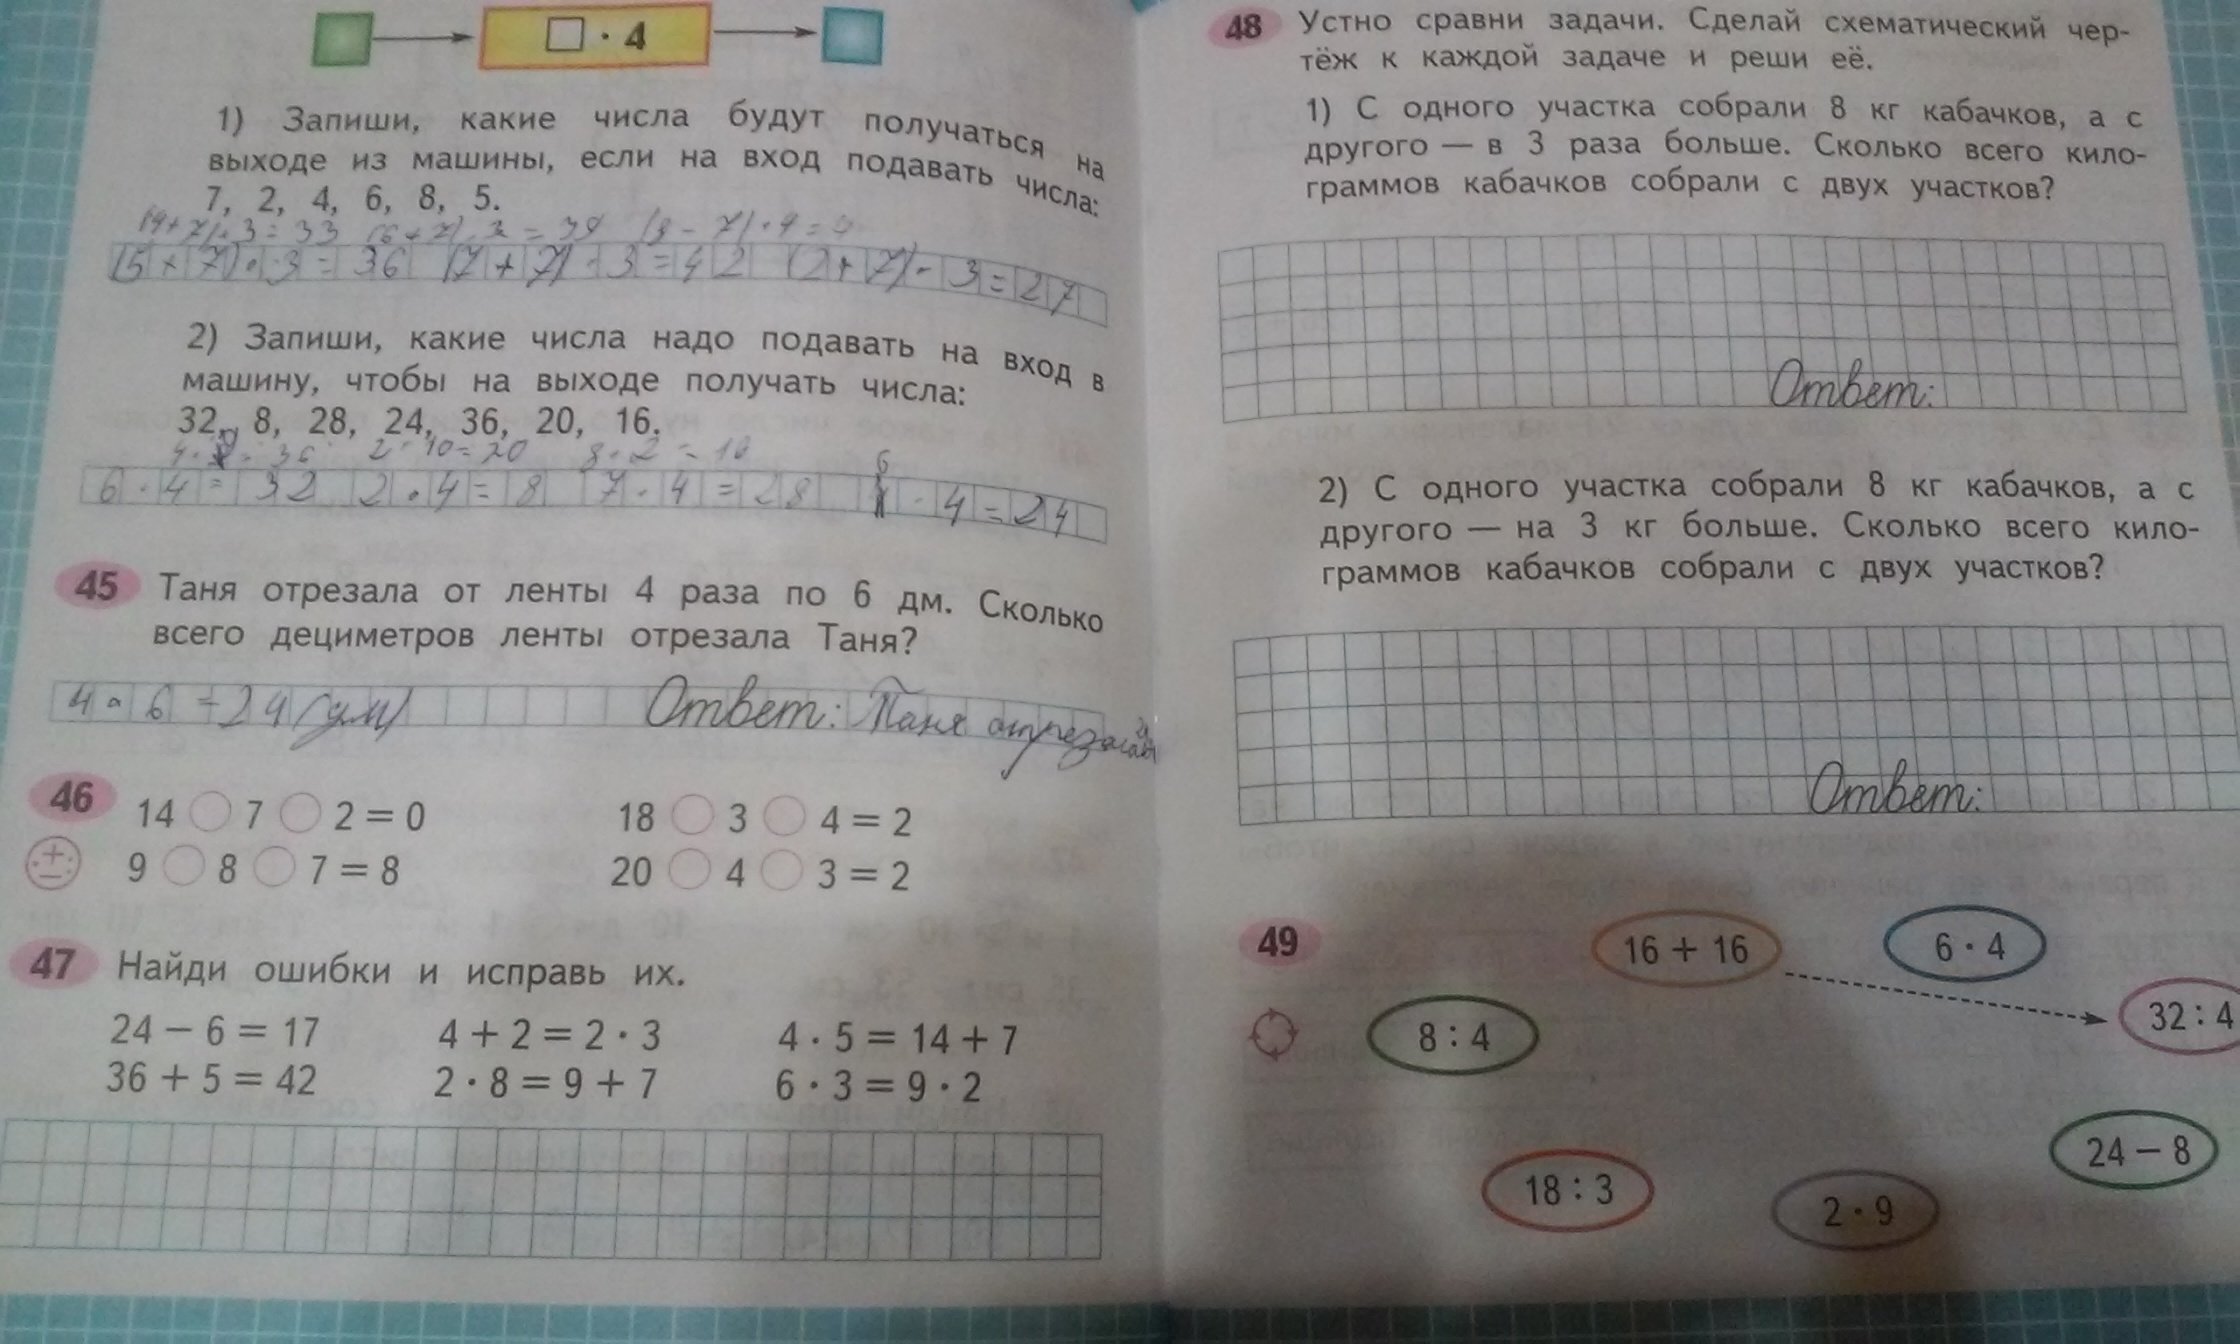 □ · 4
1) Запиши, какие числа будут получаться на
выходе из машины, если на вход подавать числа:
7, 2, 4, 6, 8, 5.
(4+7)·3=33 (6+7)·3=39 (8-7)·4=4
(5+7)·3=36 (7+7)·3=42 (2+7)·3=27
2) Запиши, какие числа надо подавать на вход в
машину, чтобы на выходе получать числа:
32, 8, 28, 24, 36, 20, 16.
4·9=36 2·10=20 8·2=16
6·4=32 2·4=8 7·4=28 6·4=24
45 Таня отрезала от ленты 4 раза по 6 дм. Сколько
всего дециметров ленты отрезала Таня?
4·6=24(дм) Ответ: Таня отрезала
46 14 ○ 7 ○ 2 = 0 18 ○ 3 ○ 4 = 2
9 ○ 8 ○ 7 = 8 20 ○ 4 ○ 3 = 2
47 Найди ошибки и исправь их.
24 − 6 = 17 4 + 2 = 2 · 3 4 · 5 = 14 + 7
36 + 5 = 42 2 · 8 = 9 + 7 6 · 3 = 9 · 2
48 Устно сравни задачи. Сделай схематический чер-
тёж к каждой задаче и реши её.
1) С одного участка собрали 8 кг кабачков, а с
другого — в 3 раза больше. Сколько всего кило-
граммов кабачков собрали с двух участков?
Ответ:
2) С одного участка собрали 8 кг кабачков, а с
другого — на 3 кг больше. Сколько всего кило-
граммов кабачков собрали с двух участков?
Ответ:
49 16 + 16 6 · 4
8 : 4 32 : 4
24 − 8
18 : 3 2 · 9